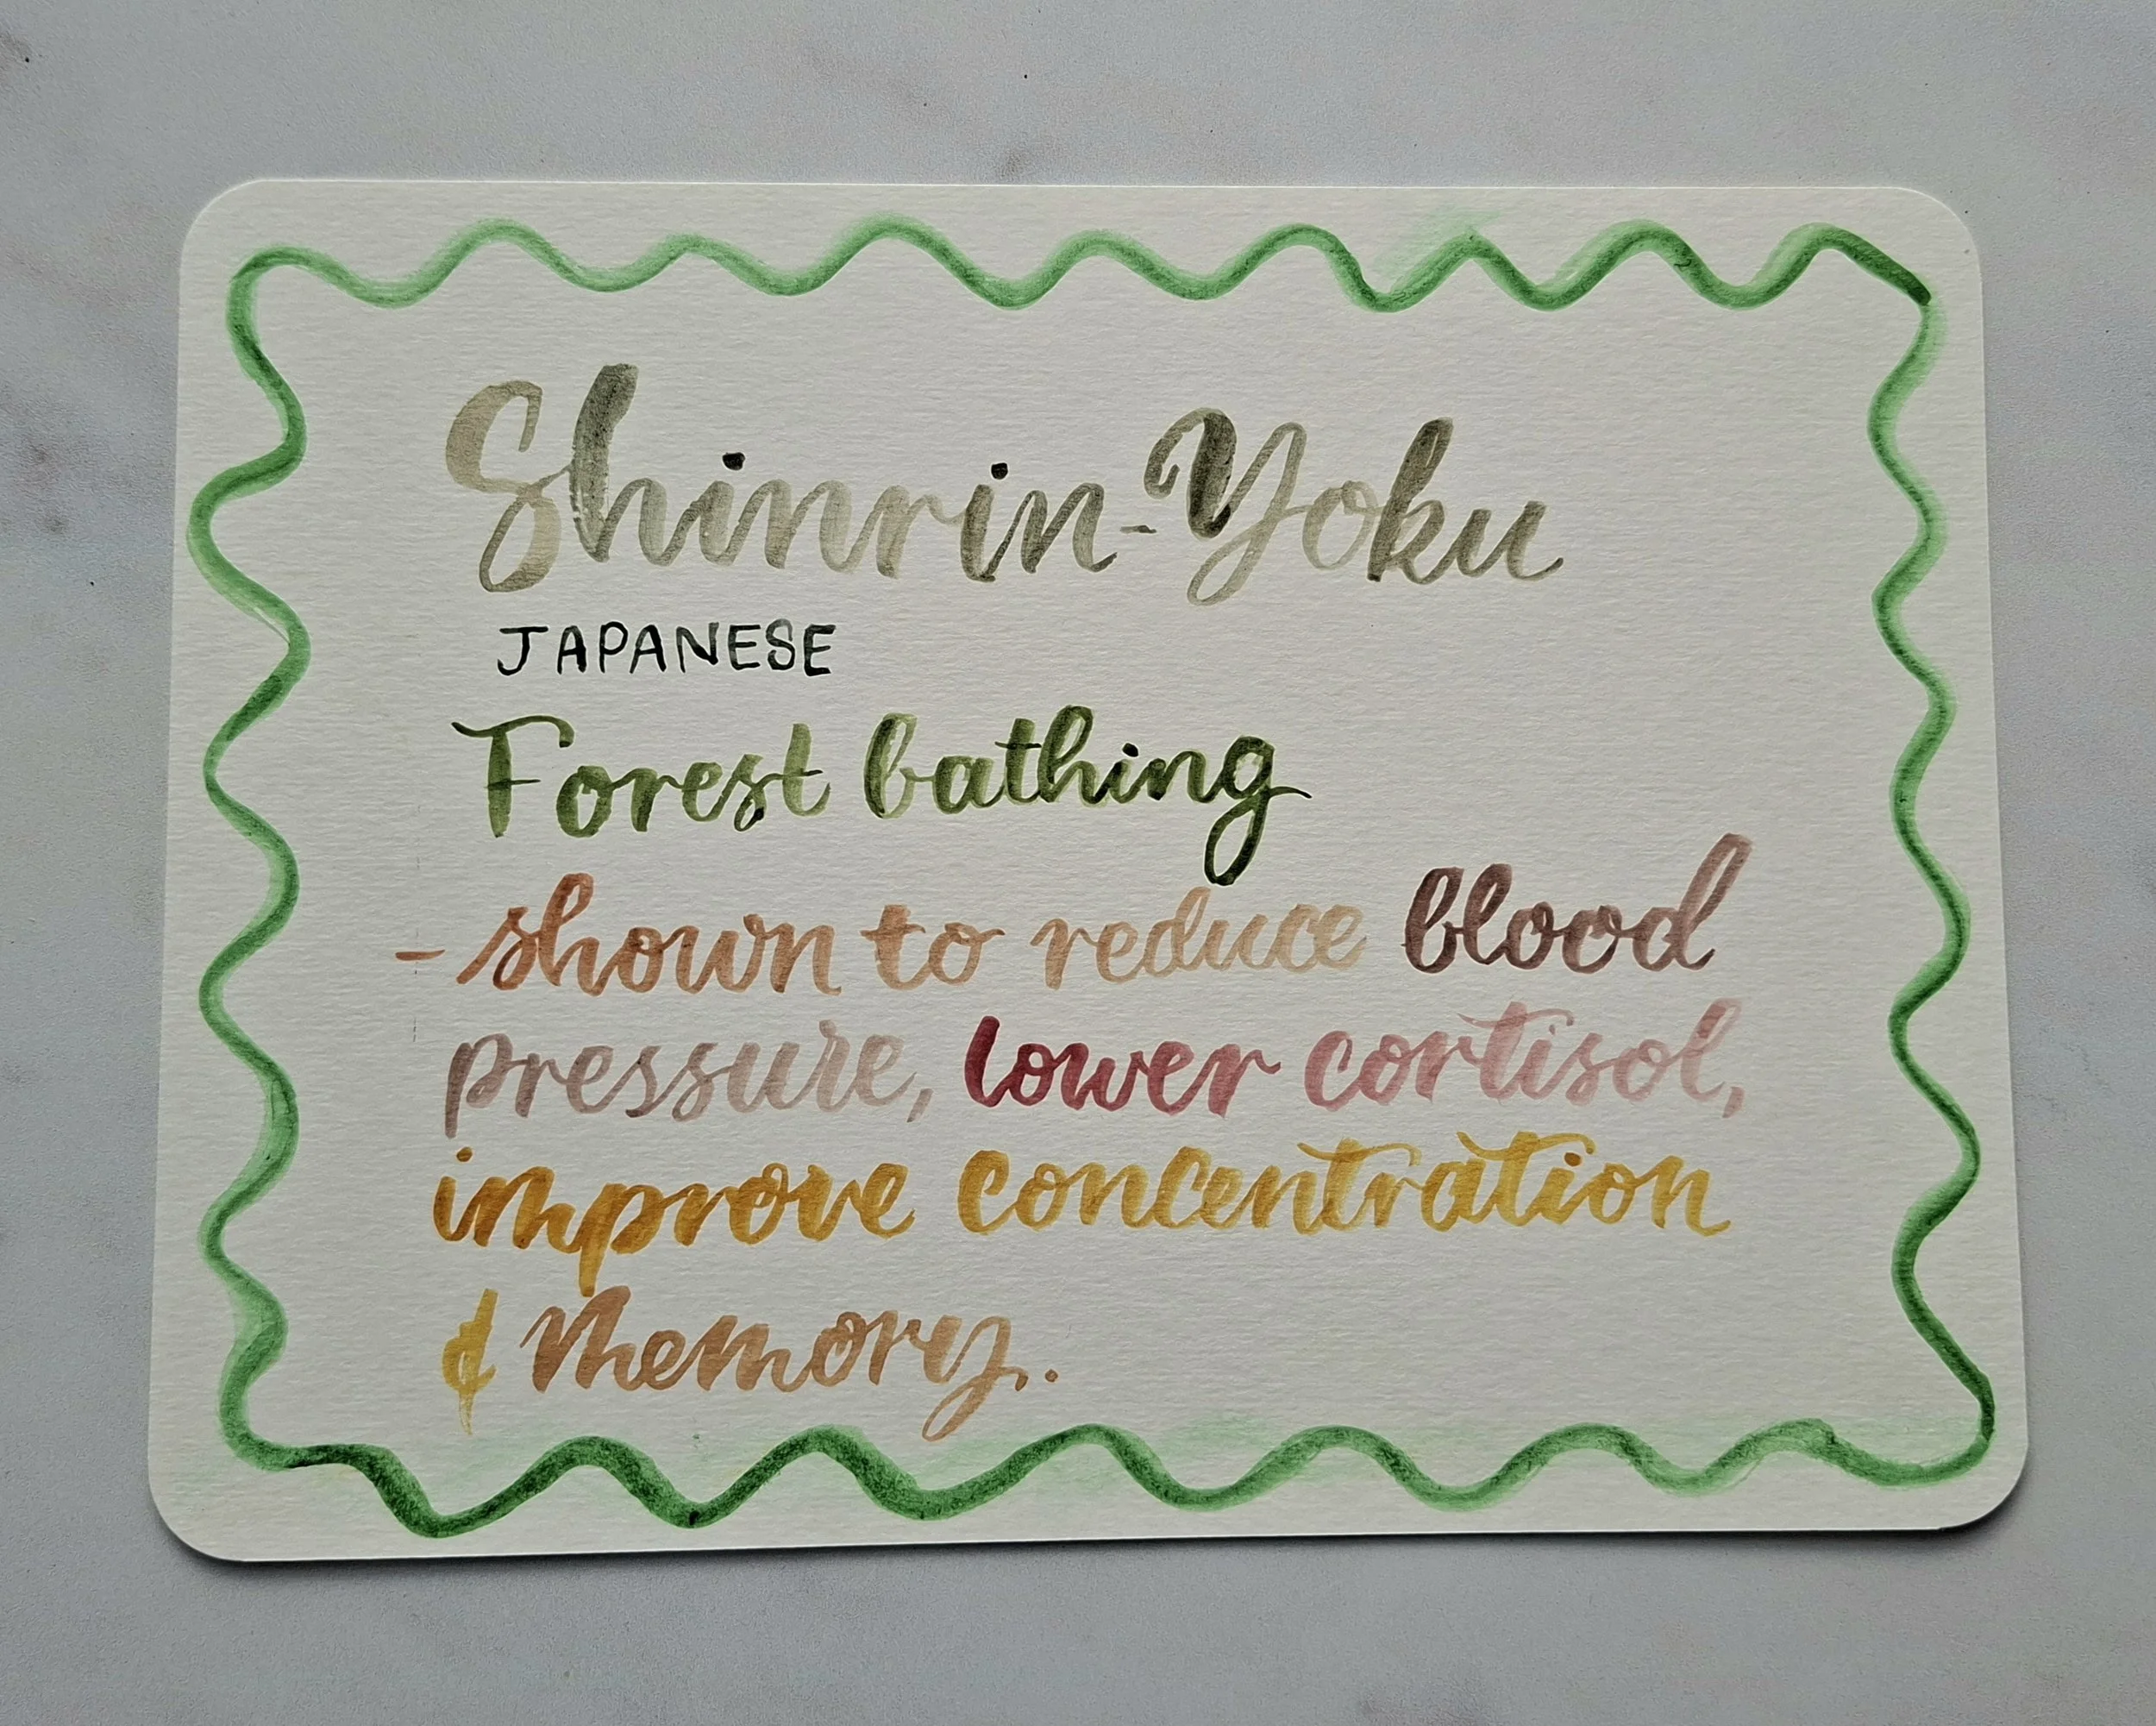 Shinrin-Yoku
JAPANESE
Forest bathing
- shown to reduce blood
pressure, lower cortisol,
improve concentration
& memory..